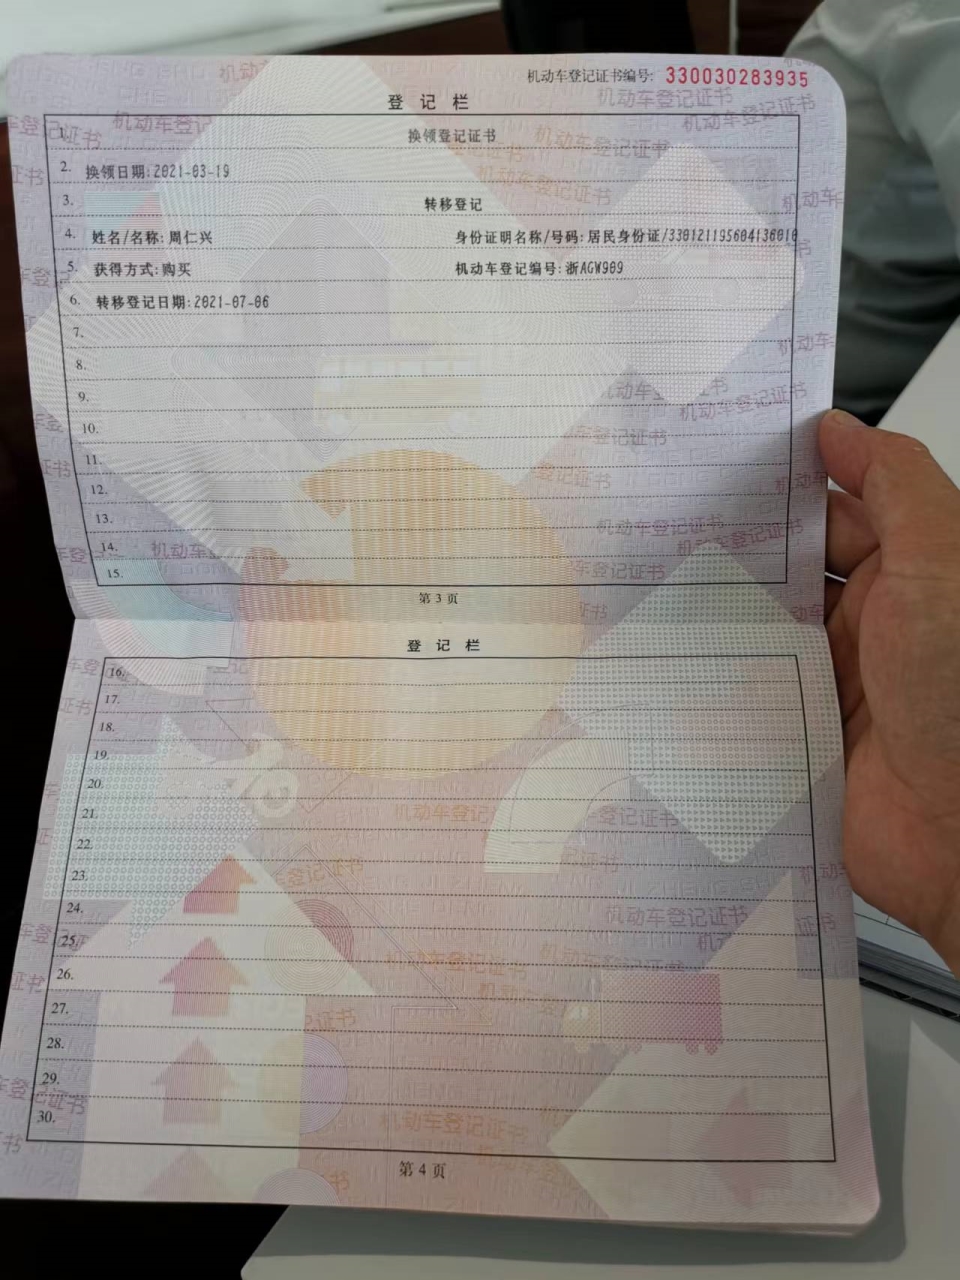 机动车登记证书编号: 330030283935
登 记 栏
1. 换领登记证书
2. 换领日期:2021-03-19
3. 转移登记
4. 姓名/名称:周仁兴 身份证明名称/号码:居民身份证/330121195604136010
5. 获得方式:购买 机动车登记编号:浙AGW909
6. 转移登记日期:2021-07-06
7.
8.
9.
10.
11.
12.
13.
14.
15.
第 3 页
登 记 栏
16.
17.
18.
19.
20.
21.
22.
23.
24.
25.
26.
27.
28.
29.
30.
第 4 页